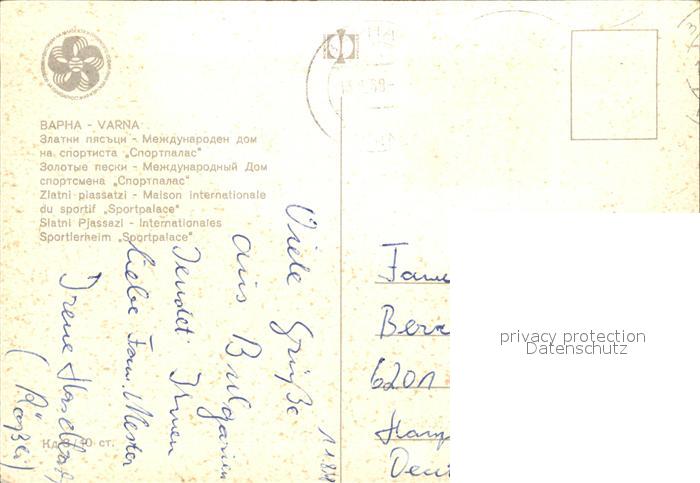 ВАРНА - VARNA
Златни пясъци - Международен дом
на спортиста „Спортпалас"
Золотые пески - Международный Дом
спортсмена „Спортпалас"
Zlatni piassatzi - Maison internationale
du sportif „Sportpalace"
Slatni Pjassazi - Internationales
Sportlerheim „Sportpalace"
Viele Grüße
aus Bulgarien
sendet Ihnen
liebe Fam. Mester
Irene
(Rößler)
Кл. 8/10 ст.
Fam
Bern
6201
Deut
privacy protection
Datenschutz